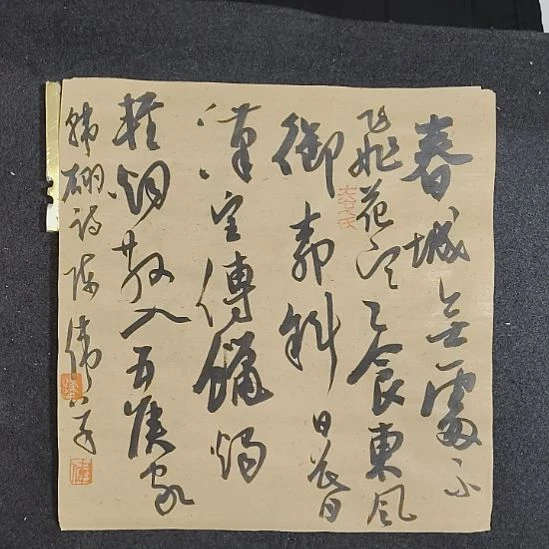 春城無處不
飛花寒食東風
御柳斜日暮
漢宮傳蠟燭
輕烟散入五侯家
韓翃詩陳偉